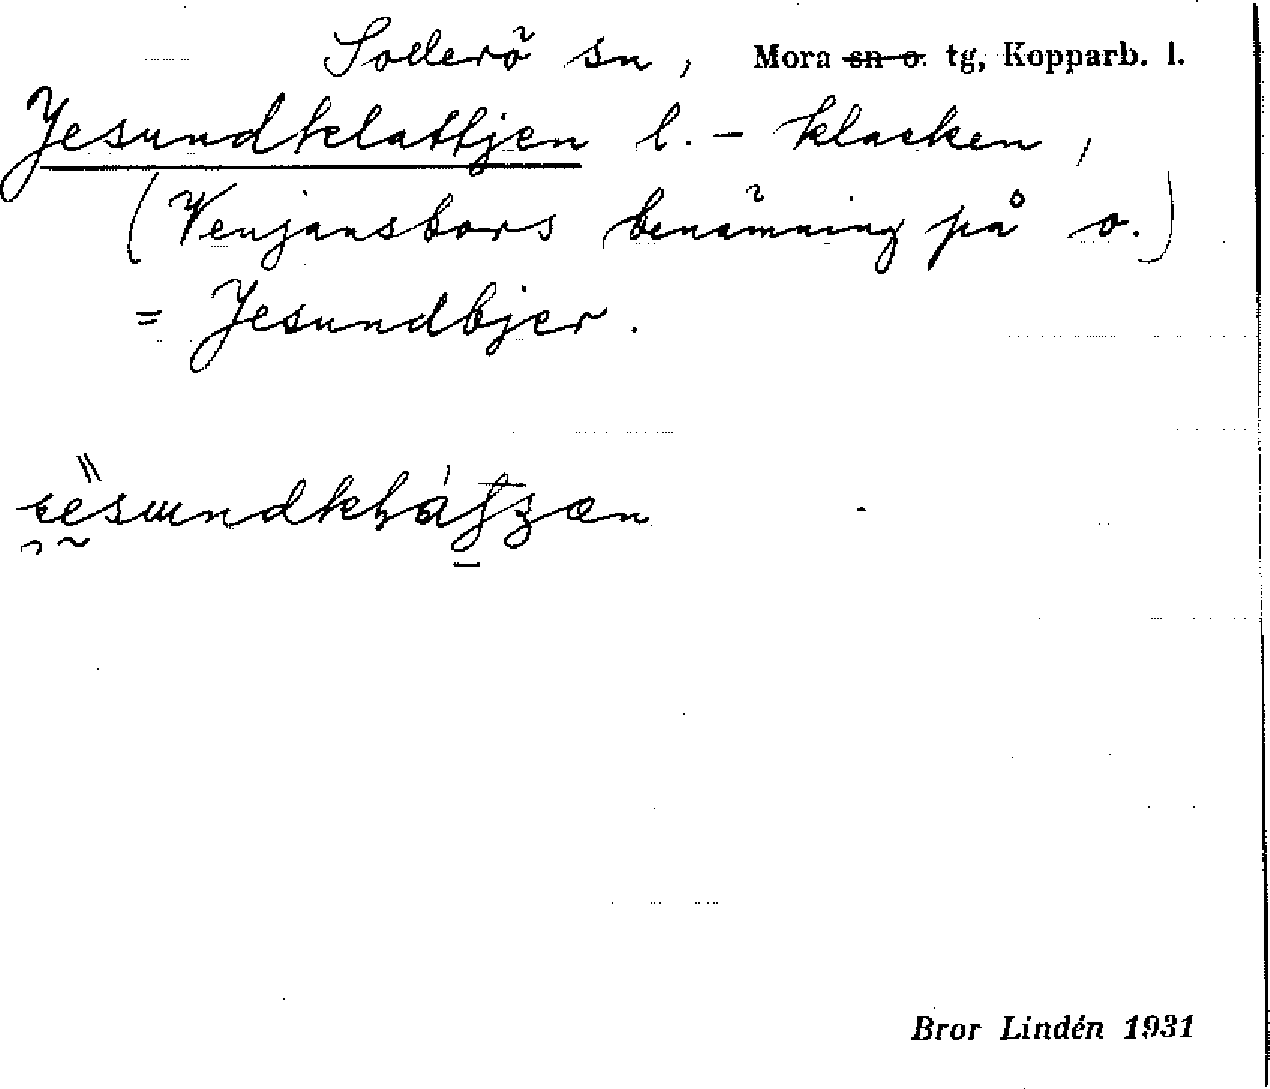 Sollerö sn, Mora sn o. tg, Kopparb. l.
Jesundklattjen l. - klacken,
(Venjansbors benämning på o.)
= Jesundbjer.
Bror Lindén 1931